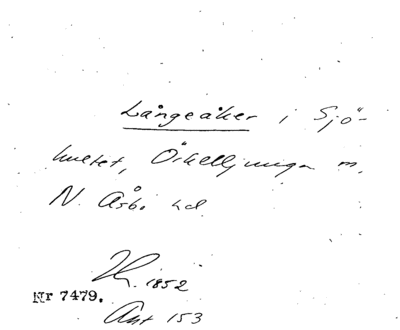 Långeåker i Sjö-
hultet, Örkelljunga m.
N. Åsbo hd
1852
Nr 7479.
Ant 153